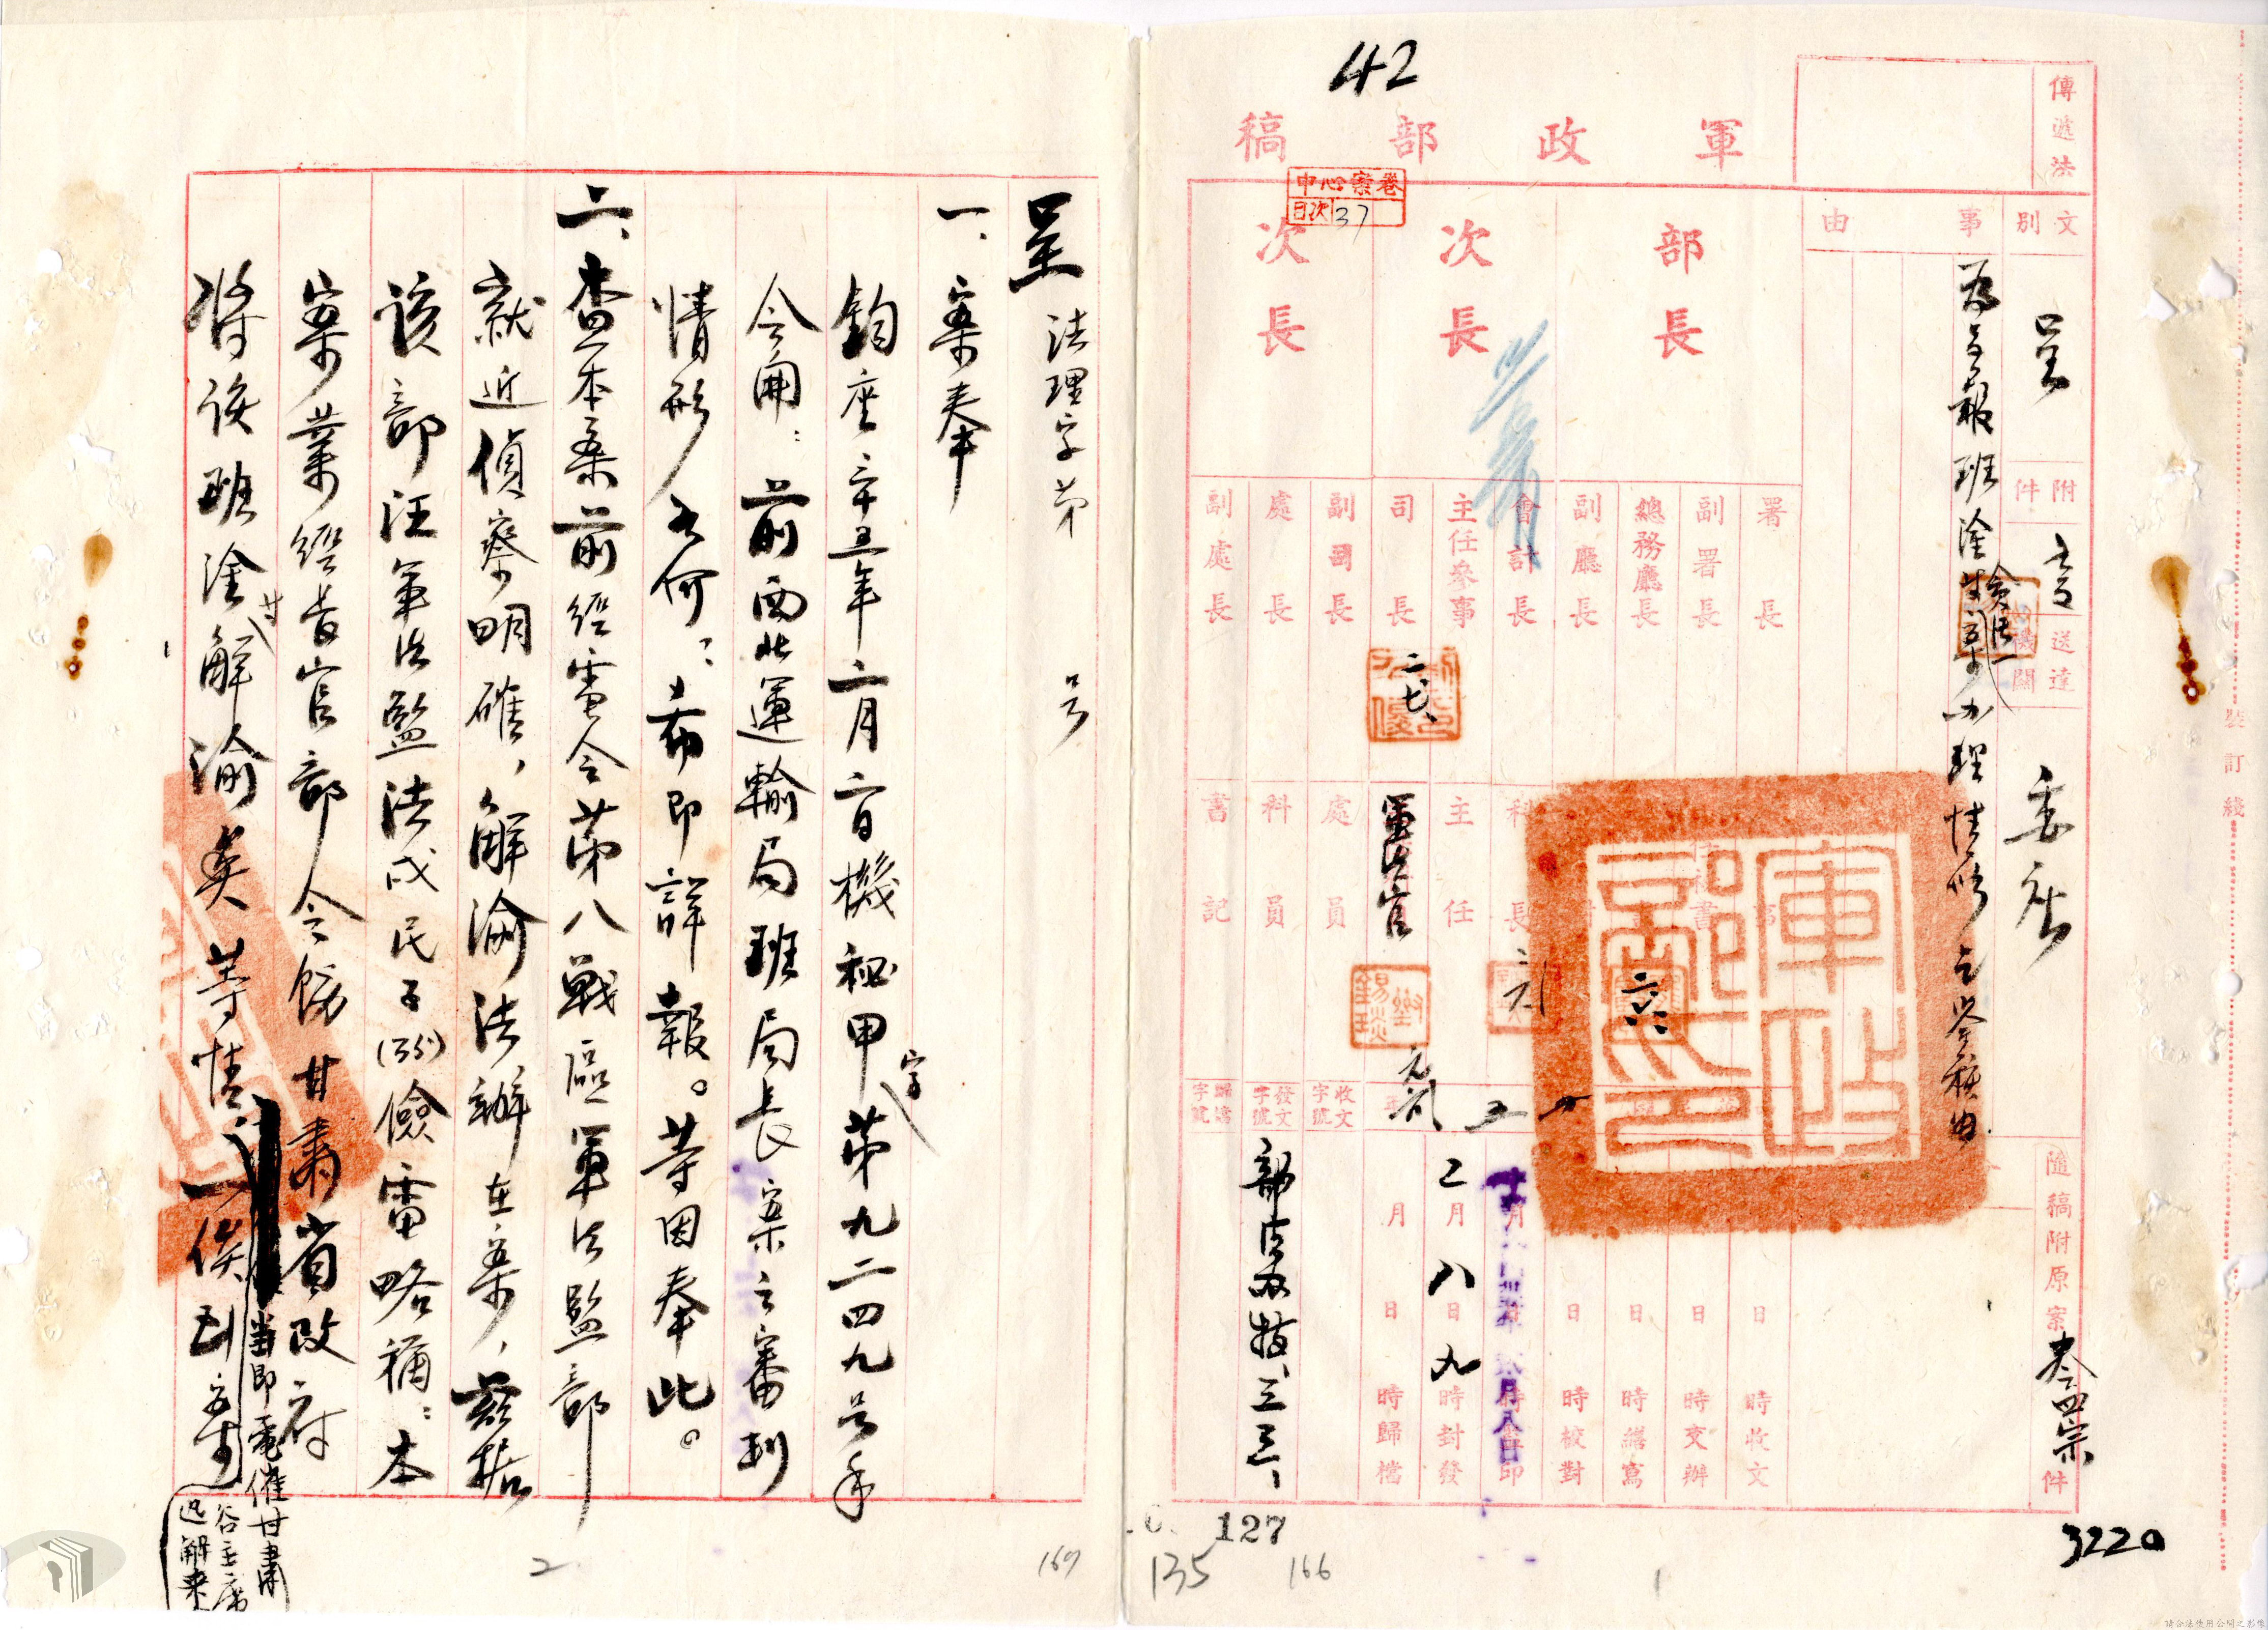 42
軍政部稿
中心案卷
目次 37
傳遞法
文別
呈
附件
送達機關
委座
事由
為呈報班淦
辦理情形乞鑒核由
隨稿附原案 件
叁四宗
部長
次長
次長
署長
副署長
總務廳長
副廳長
會計長
主任參事
司長
副司長
處長
副處長
科長
主任
軍法官
處員
科員
書記
軍政部印
收文字號
發文字號
歸檔字號
月 日 時收文
時交辦
日 時繕寫
日 時校對
月 日 時蓋印
2月八日九時封發
月 日 時歸檔
裝訂綫
127
135
166
3220
呈 法理字第 号
一、案奉
鈞座卅五年二月二日機秘甲字第九二四九号手
令開：前西北運輸局班局長案之審判
情形如何：希即詳報。等因奉此。
二、查本案前經電令第八戰區軍法監部
就近偵察明確，解渝法辦在案，茲據
該部汪軍法監法戌民子(35)儉電略稱：本
案業經長官部令飭甘肅省政府
將該班淦等解渝矣等情
當即電催甘肅
谷主席
迅解來
俟到案
2
169
1
請合法使用公開之影像